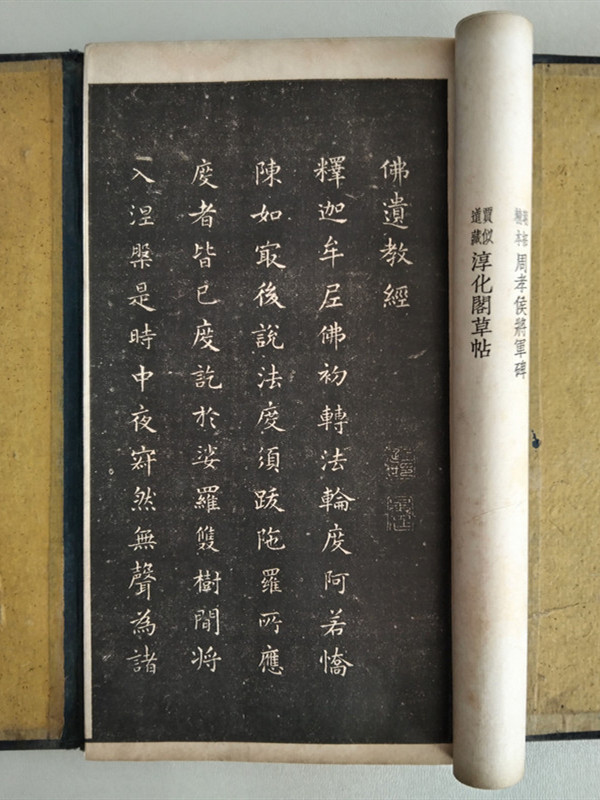 周孝侯將軍碑
賈似道藏
淳化閣草帖
佛遺教經
釋迦牟尼佛初轉法輪度阿若憍
陳如㝡後說法度須跋陁羅所應
度者皆已度訖於娑羅雙樹間将
入涅槃是時中夜𡧯然無聲為諸